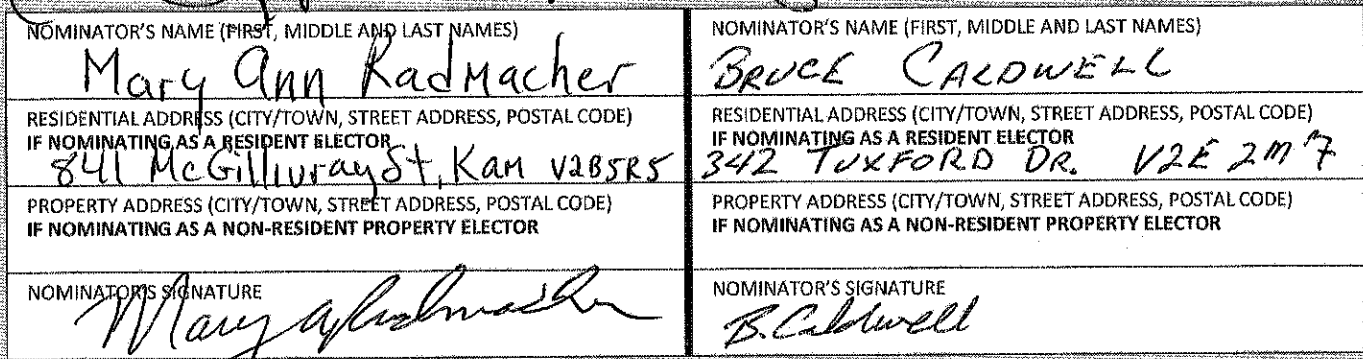 NOMINATOR'S NAME (FIRST, MIDDLE AND LAST NAMES)
Mary Ann Radmacher
RESIDENTIAL ADDRESS (CITY/TOWN, STREET ADDRESS, POSTAL CODE)
IF NOMINATING AS A RESIDENT ELECTOR
841 McGillivray St, Kam V2B5R5
PROPERTY ADDRESS (CITY/TOWN, STREET ADDRESS, POSTAL CODE)
IF NOMINATING AS A NON-RESIDENT PROPERTY ELECTOR
NOMINATOR'S SIGNATURE
Mary A Radmacher
NOMINATOR'S NAME (FIRST, MIDDLE AND LAST NAMES)
BRUCE CALDWELL
RESIDENTIAL ADDRESS (CITY/TOWN, STREET ADDRESS, POSTAL CODE)
IF NOMINATING AS A RESIDENT ELECTOR
342 TUXFORD DR. V2E 2M7
PROPERTY ADDRESS (CITY/TOWN, STREET ADDRESS, POSTAL CODE)
IF NOMINATING AS A NON-RESIDENT PROPERTY ELECTOR
NOMINATOR'S SIGNATURE
B. Caldwell